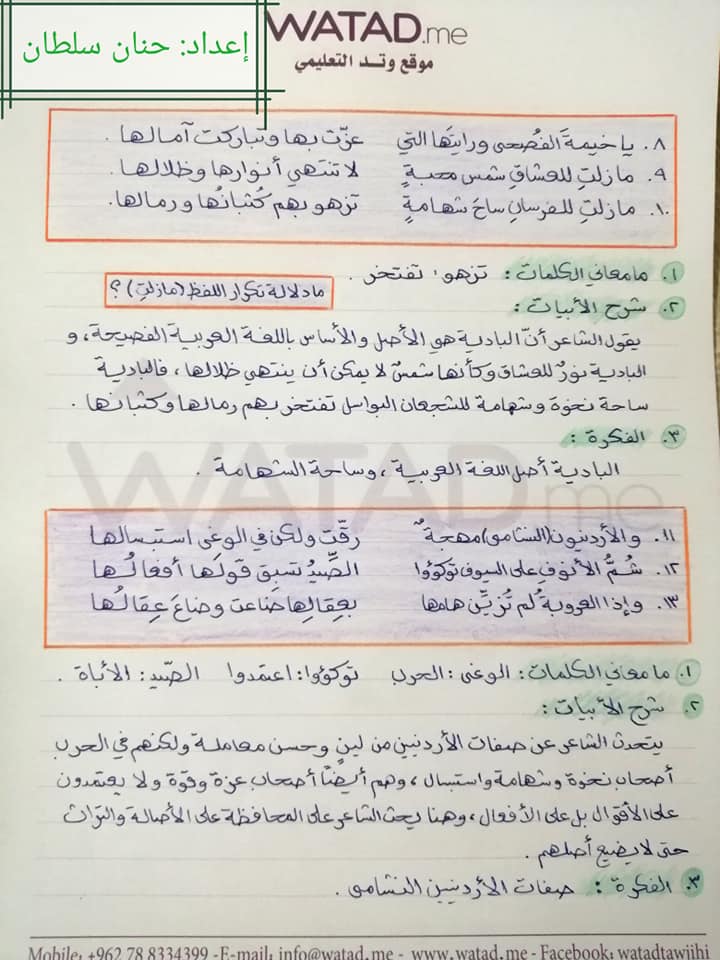 إعداد: حنان سلطان
WATAD.me
موقع وتد التعليمي
٨. يا خيمةَ الفُصحى ورايتَها التي عزّت بها وتباركت آمالها.
٩. مازلتِ للعشاقِ شمس محبةٍ لا تنتهي أنوارها وظلالها.
١٠. مازلتِ للفرسانِ ساحَ شهامةٍ تزهو بهم كُثبانُها ورمالها.
١. ما معاني الكلمات: تزهو: تفتخر.
ما دلالة تكرار اللفظ (مازلتِ)؟
٢. شرح الأبيات:
يقول الشاعر أنّ البادية هي الأصل والأساس باللغة العربية الفصيحة، و
البادية نورٌ للعشاق وكأنها شمسٌ لا يمكن أن ينتهي ظلالها، فالبادية
ساحة نخوة وشهامة للشجعان البواسل تفتخر بهم رمالها وكثبانها.
٣. الفكرة:
البادية أصل اللغة العربية، وساحة الشهامة.
WATAD.me
١١. والأردنيون (النشامى) مهجةٌ رقّت ولكن في الوغى استبسالها
١٢. شُمُّ الأنوفِ على السيوف توكؤوا الصِّيدُ تسبق قولَها أفعالُها
١٣. وإذا العروبةُ لم تُزيّن هامها بعِقالِها ضاعت وضاعَ عِقالُها
١. ما معاني الكلمات: الوغى: الحرب توكؤوا: اعتمدوا الصّيد: الأباة.
٢. شرح الأبيات:
يتحدث الشاعر عن صفات الأردنيين من لينٍ وحسن معاملة ولكنهم في الحرب
أصحاب نخوة وشهامة واستبسال، وهم أيضاً أصحاب عزة وقوة ولا يعتمدون
على الأقوال بل على الأفعال، وهنا يحث الشاعر على المحافظة على الأصالة والتراث
حتى لا يضيع أصلهم.
٣. الفكرة: صفات الأردنيين النشامى.
Mobile: +962 78 8334399 -E-mail: info@watad.me - www.watad.me - Facebook: watadtawjihi